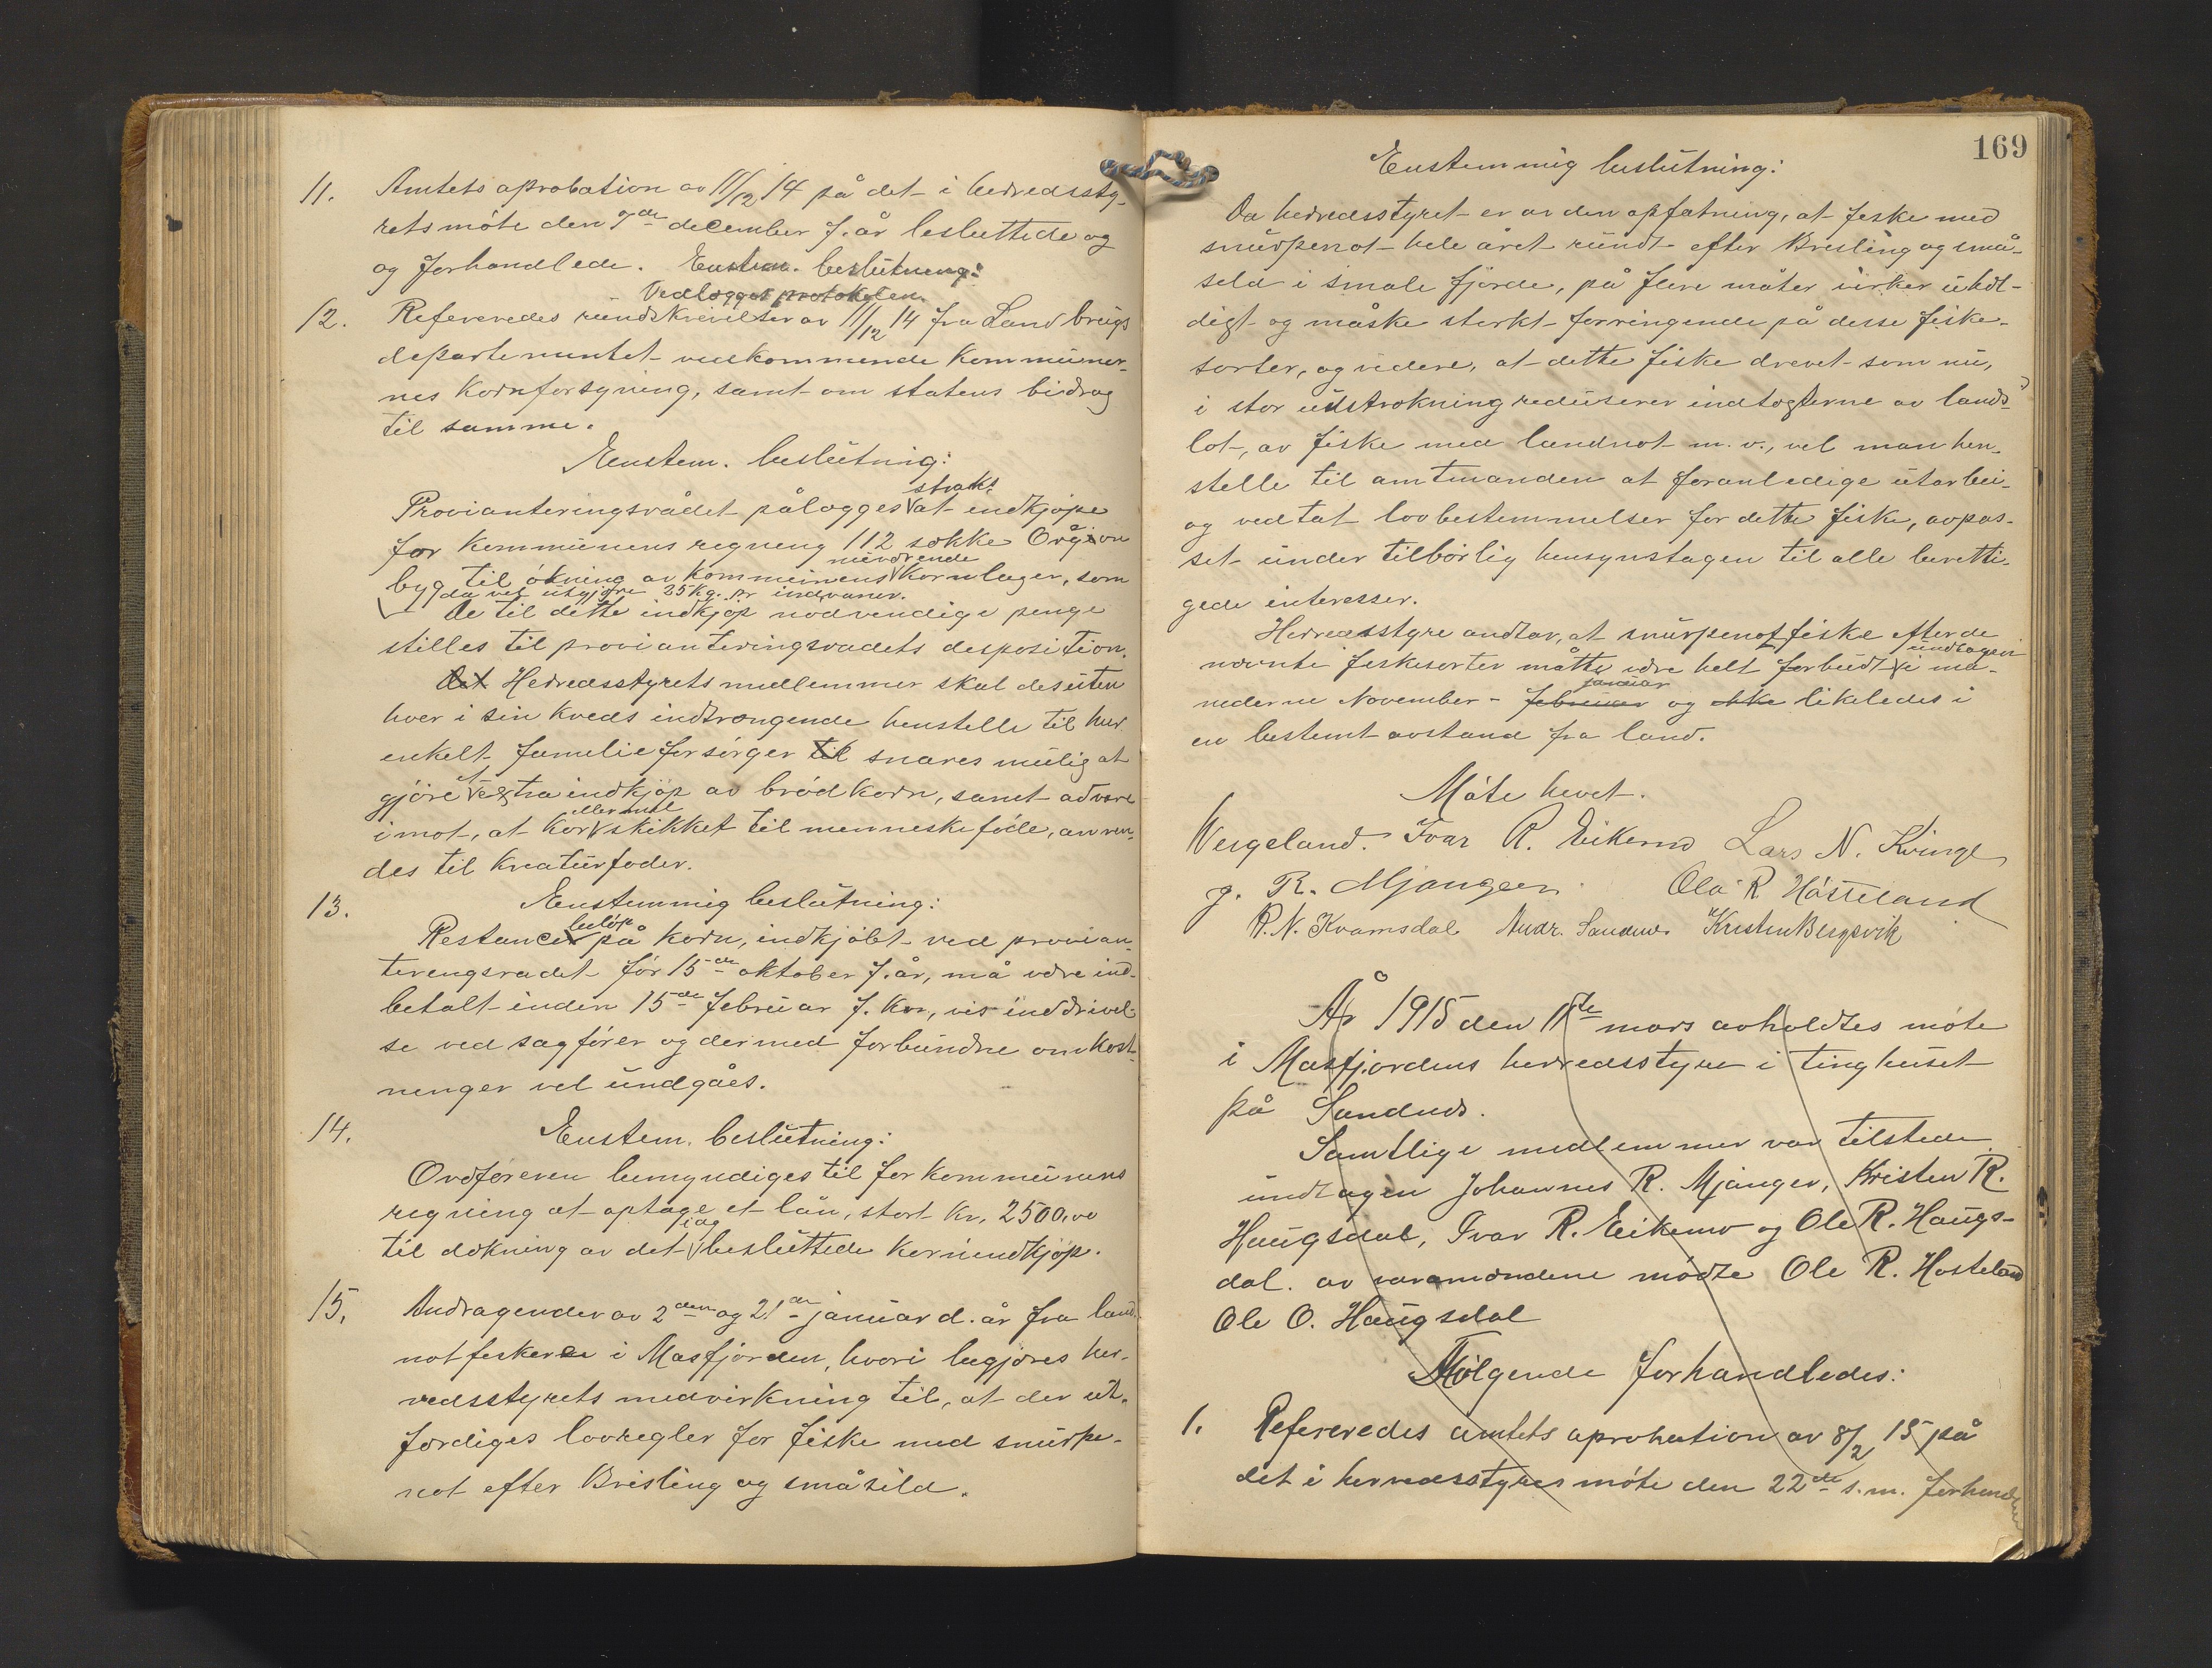 11. Amtets aprobation av 11/12 14 på det i herredssty-
rets møte den 7de december f. år besluttede og
og forhandlede. Enstem. beslutning:
Vedlægges protokollen.
12. Refereredes rundskrivelser av 11/12 14 fra Landbrugs
departementet vedkommende kommuner-
nes kornforsyning, samt om statens bidrag
til samme.
Eenstem. beslutnig:
straks
Provianteringsrådet pålægges at indkjøpe
for kommunens regneng 112 sække Orgion
nuværende
byg til økning av kommunens kornlager, som
da vil utgjøre 25 kg. pr indvaner.
De til dette indkjøp nødvendige penge
stilles til provianteringsradets desposition.
Det Herredsstyrets medlemmer skal desuten
hver i sin kreds indtrængende henstelle til hver
enkelt familieforsørger til snares mulig at
gjøre extra indkjøp av brødkorn, samt advare
eller mel
imot, at korn skikket til menneskeføde, anven-
des til kreaturfoder.
13. Eenstemmig beslutning:
beløp
Restancer på korn, indkjøbt ved provian-
terengsradet før 15de oktober f. år, må være ind-
betalt inden 15de februar f. kom, vis inddrivel-
se ved sagfører og dermed forbundne omkost-
ninger vel undgåes.
14. Eenstem. beslutning:
Ordføreren bemyndiges til for kommunens
regning at optage et lån, stort kr. 2500,00
idag
til dækning av det besluttede kornindkjøp.
15. Andragender av 2den og 21de januar d. år fra land-
notfeskere i Masfjorden, hvori begjæres her-
redsstyrets medvirkning til, at der ut-
færdiges lovregler for feske med snurpe-
not efter Brisling og småsild.
169
Eenstemmig beslutning:
Da herredsstyret er av den opfatning, at feske med
snurpenot hele året rundt efter Bresling og små-
seld i smale fjorde, på flere måter virker uhel-
digt og måske sterkt forringende på desse feske-
sorter, og videre, at dette feske drevet som nu,
i stor udstrækning reduserer indtægterne av lands-
lot, av feske med landnot m. v., vel man hen-
stelle til amtmanden at foranledige utarbei-
og vedtat lovbestemmelser for dette feske, avpas-
set under tilbørlig hensynstagen til alle beretti-
gede interesser.
Herredsstyre andtar, at snurpenotfeske efter de
undtagen
nævnte feskesorter måtte være helt forbudt i må-
januar
nederne November - februar og ikke likeledes i
en bestemt avstand fra land.
Møte hevet.
Wergeland. Ivar R. Eikemo Lars N. Kvinge
J. R. Mjangeer. Ola R Håsteland
R. N. Kvamsdal Andr. Sandnes Kristen Bergsvik
År 1915 den 11te mars avholdtes møte
i Masfjordens herredsstyre i tinghuset
på Sandnes.
Samtlige medlemmer var tilstede
undtagen Johannes R. Mjanger, Kristen R.
Haugsdal, Ivar R. Eikemo og Ole R. Haugs-
dal. av varamændene mødte Ole R. Hosteland
Ole O. Haugsdal
Følgende forhandledes:
1. Refereredes amtets aprobation av 8/2 15 på
det i herredsstyres møte den 22de s. m. forhand